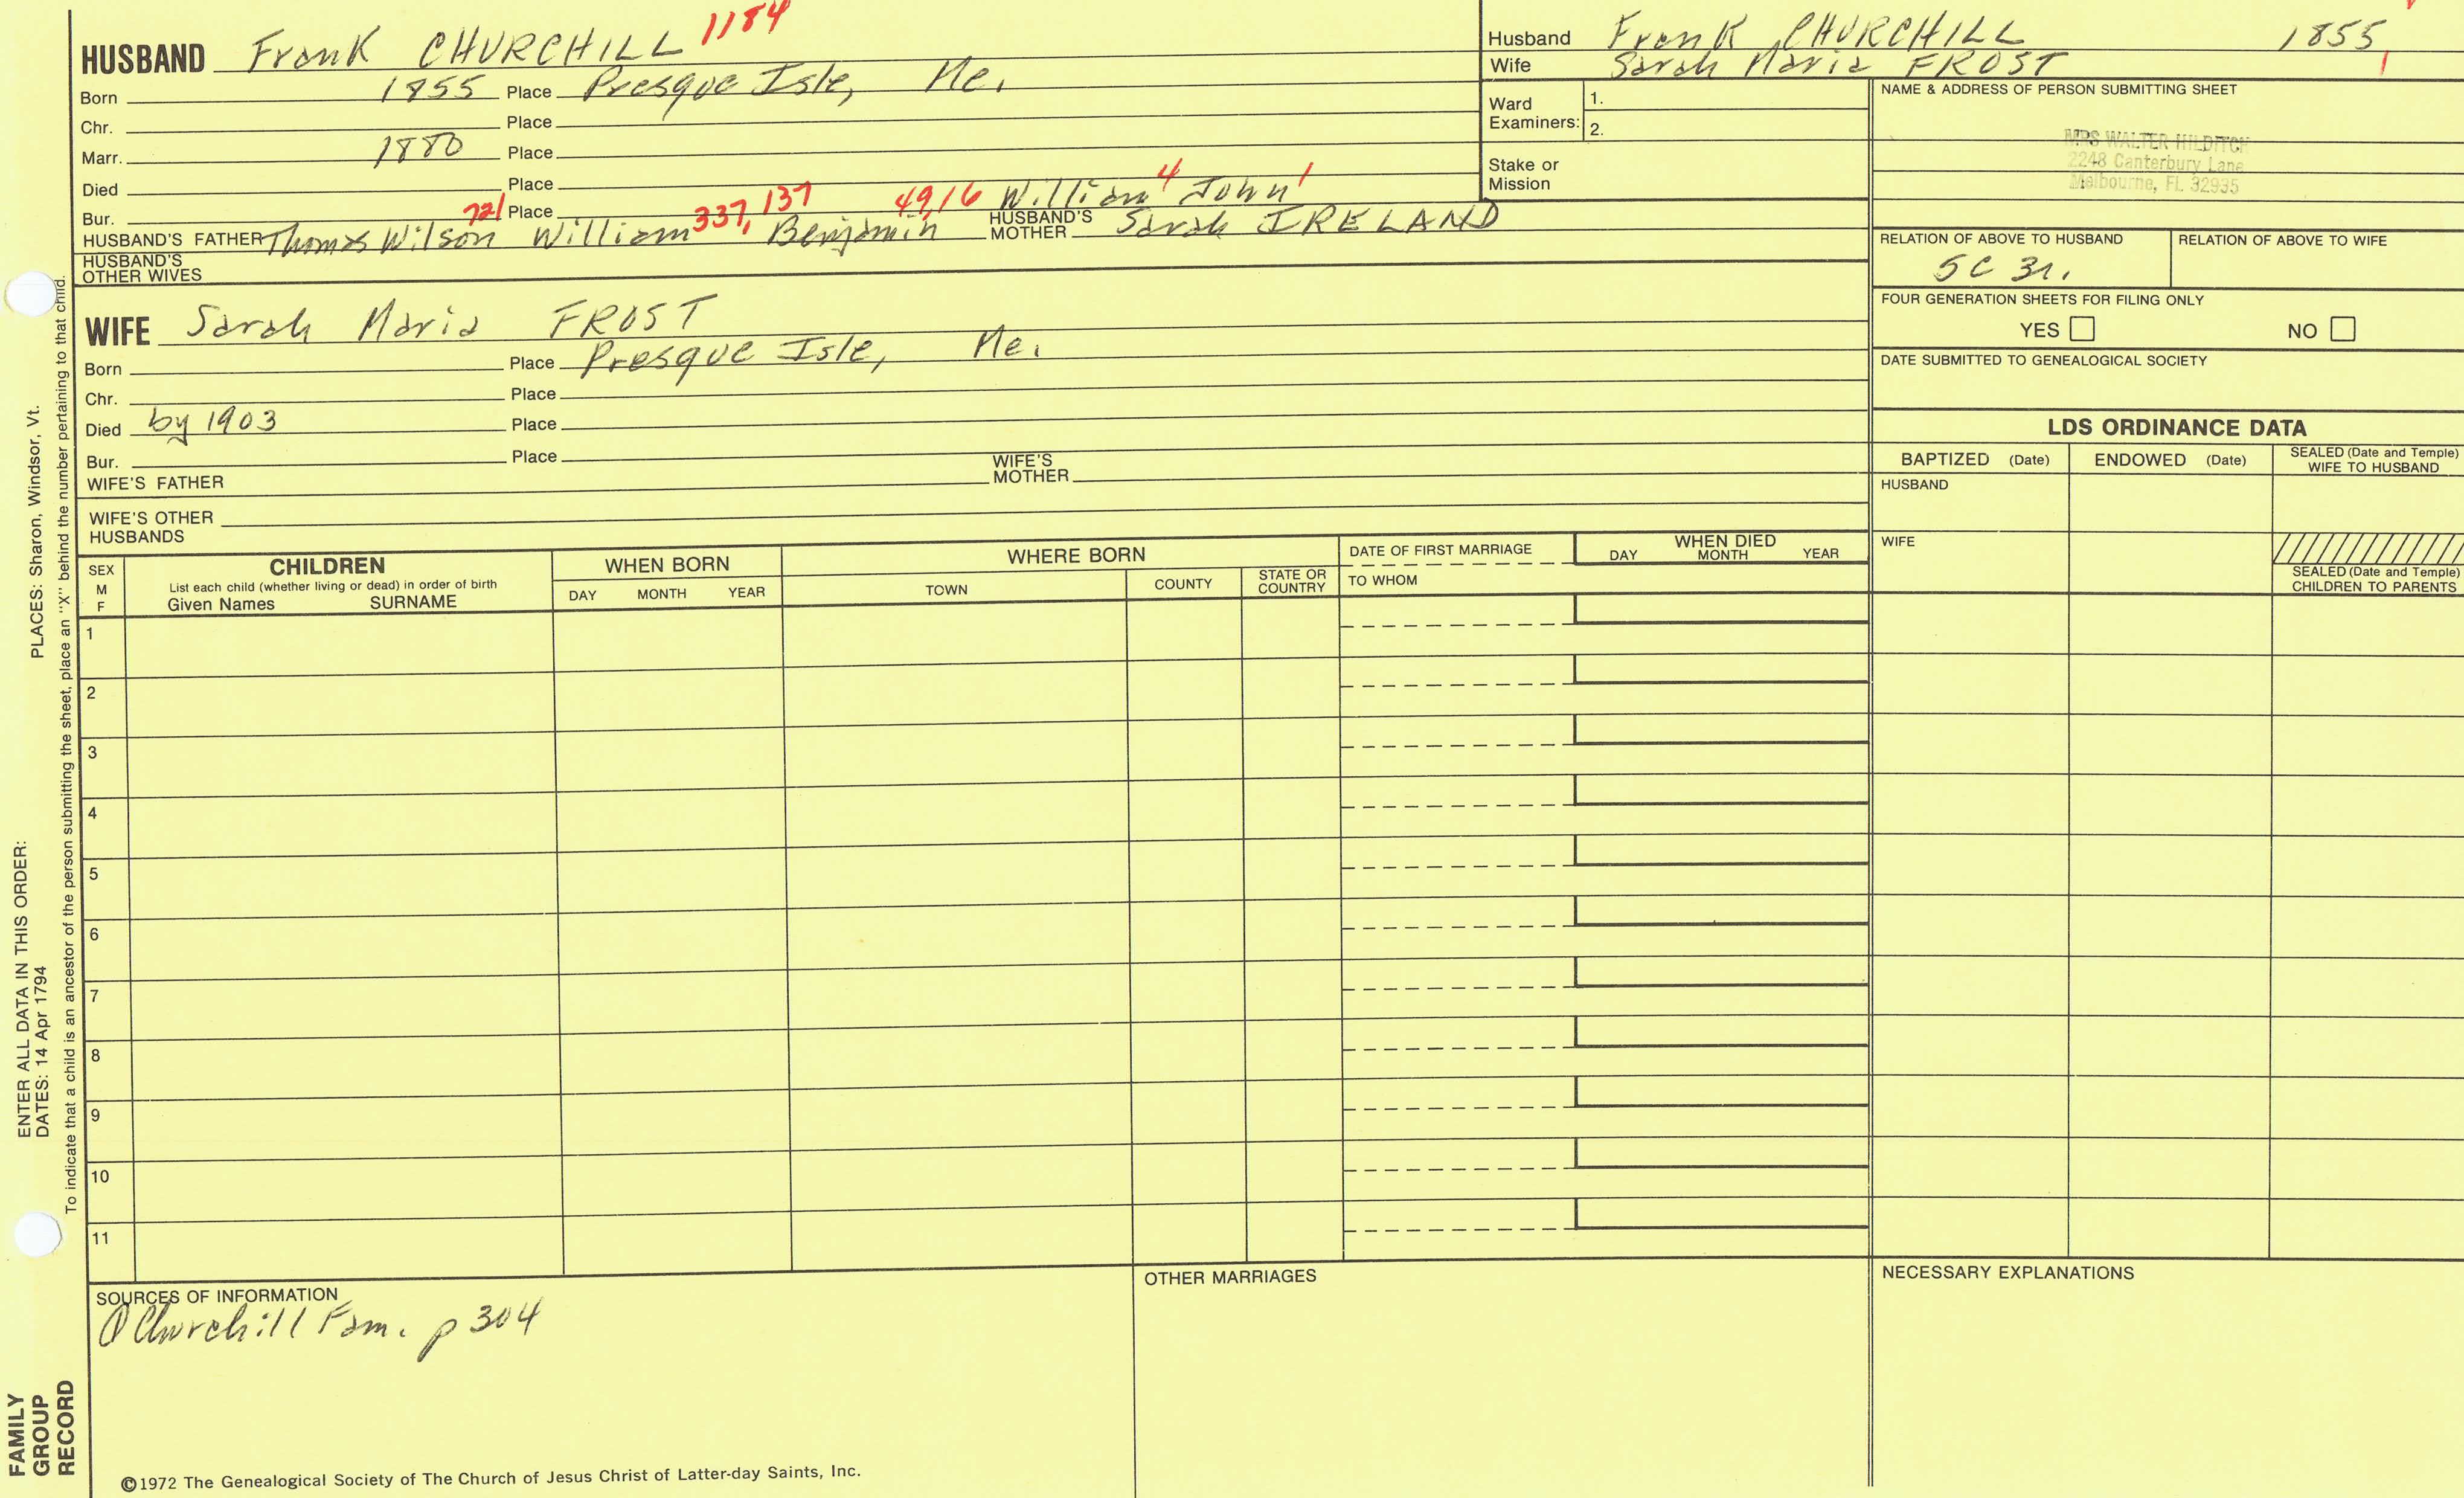 HUSBAND Frank CHURCHILL 1184
Born 1855 Place Presque Isle, Me.
Chr. Place
Marr. 1880 Place
Died Place
Bur. Place
721 337, 137 49,16 William 4 John 1
HUSBAND'S FATHER Thomas Wilson William Benjamin HUSBAND'S MOTHER Sarah IRELAND
HUSBAND'S
OTHER WIVES
WIFE Sarah Maria FROST
Born Place Presque Isle, Me.
Chr. Place
Died by 1903 Place
Bur. Place
WIFE'S FATHER WIFE'S MOTHER
WIFE'S OTHER
HUSBANDS
Husband Frank CHURCHILL 1855
Wife Sarah Maria FROST 1
Ward
Examiners: 1.
2.
Stake or
Mission
NAME & ADDRESS OF PERSON SUBMITTING SHEET
MRS WALTER HILDITCH
2248 Canterbury Lane
Melbourne, FL 32935
RELATION OF ABOVE TO HUSBAND RELATION OF ABOVE TO WIFE
5C 3r.
FOUR GENERATION SHEETS FOR FILING ONLY
YES NO
DATE SUBMITTED TO GENEALOGICAL SOCIETY
LDS ORDINANCE DATA
BAPTIZED (Date) ENDOWED (Date) SEALED (Date and Temple)
WIFE TO HUSBAND
HUSBAND
WIFE
SEALED (Date and Temple)
CHILDREN TO PARENTS
SEX
M
F
CHILDREN
List each child (whether living or dead) in order of birth
Given Names SURNAME
WHEN BORN
DAY MONTH YEAR
WHERE BORN
TOWN COUNTY STATE OR
COUNTRY
DATE OF FIRST MARRIAGE
TO WHOM
WHEN DIED
DAY MONTH YEAR
1
2
3
4
5
6
7
8
9
10
11
SOURCES OF INFORMATION
① Churchill Fam. p 304
OTHER MARRIAGES
NECESSARY EXPLANATIONS
©1972 The Genealogical Society of The Church of Jesus Christ of Latter-day Saints, Inc.
FAMILY
GROUP
RECORD
ENTER ALL DATA IN THIS ORDER:
DATES: 14 Apr 1794
PLACES: Sharon, Windsor, Vt.
To indicate that a child is an ancestor of the person submitting the sheet, place an "X" behind the number pertaining to that child.